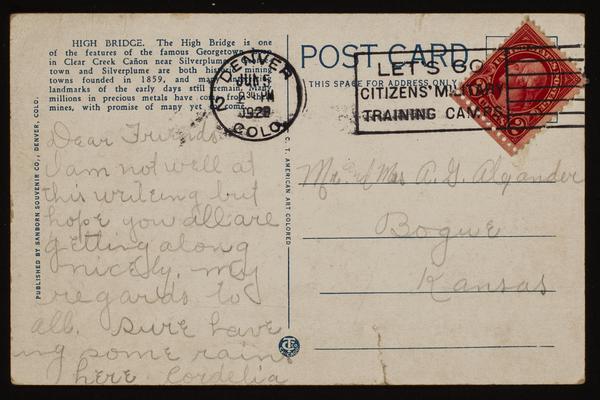 HIGH BRIDGE. The High Bridge is one
of the features of the famous Georgetown
in Clear Creek Cañon near Silverplume.
town and Silverplume are both
towns founded in 1859, and
landmarks of the early days still remain. Many
millions in precious metals have come from the
mines, with promise of many yet to come.
POST CARD
THIS SPACE FOR ADDRESS ONLY
DENVER
JUN 5
2 30 PM
COLO.
LET'S GO
CITIZENS' MILITARY
TRAINING CAMPS
Dear Friends
I am not well at
this writeing but
hope you all are
getting along
nicely. my
regards to
all. sure have
ing some rain
here Cordelia
Mr. & Mrs A. G. Alyander
Bogue
Kansas
PUBLISHED BY SANBORN SOUVENIR CO., DENVER, COLO.
C. T. AMERICAN ART COLORED